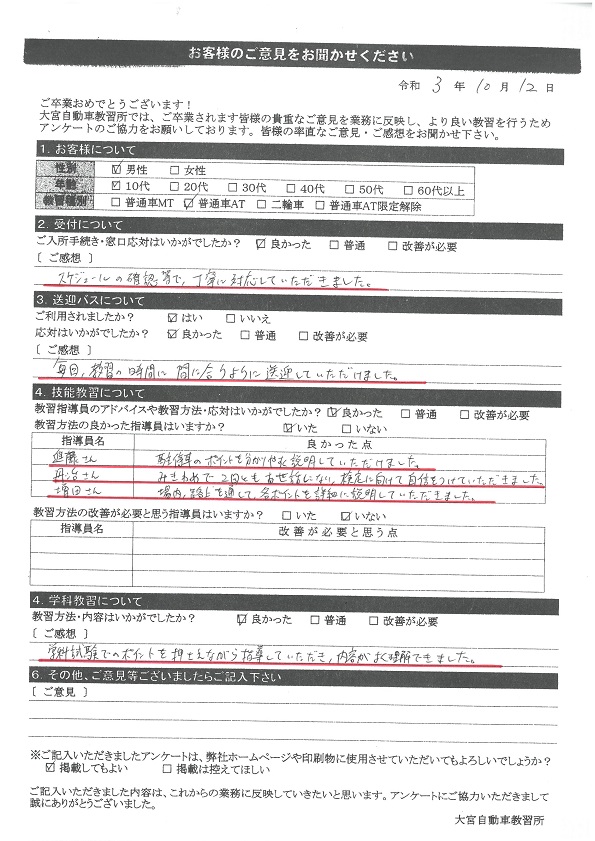 お客様のご意見をお聞かせください
令和 3 年 10 月 12 日
ご卒業おめでとうございます！
大宮自動車教習所では、ご卒業されます皆様の貴重なご意見を業務に反映し、より良い教習を行うため
アンケートのご協力をお願いしております。皆様の率直なご意見・ご感想をお聞かせ下さい。
1. お客様について
性別 ☑ 男性 □ 女性
年齢 ☑ 10代 □ 20代 □ 30代 □ 40代 □ 50代 □ 60代以上
教習種別 □ 普通車MT ☑ 普通車AT □ 二輪車 □ 普通車AT限定解除
2. 受付について
ご入所手続き・窓口応対はいかがでしたか？ ☑ 良かった □ 普通 □ 改善が必要
〔 ご感想 〕
スケジュールの確認等で、丁寧に対応していただきました。
3. 送迎バスについて
ご利用されましたか？ ☑ はい □ いいえ
応対はいかがでしたか？ ☑ 良かった □ 普通 □ 改善が必要
〔 ご感想 〕
毎回、教習の時間に間に合うように送迎していただけました。
4. 技能教習について
教習指導員のアドバイスや教習方法・応対はいかがでしたか？ ☑ 良かった □ 普通 □ 改善が必要
教習方法の良かった指導員はいますか？ ☑ いた □ いない
指導員名 良かった点
進藤さん 駐停車のポイントを分かりやすく説明していただけました。
丹治さん みきわめで2回ともお世話になり、検定に向けて自信をつけていただきました。
増田さん 場内、路上を通して、各ポイントを詳細に説明していただきました。
教習方法の改善が必要と思う指導員はいますか？ □ いた ☑ いない
指導員名 改善が必要と思う点
4. 学科教習について
教習方法・内容はいかがでしたか？ ☑ 良かった □ 普通 □ 改善が必要
〔 ご感想 〕
学科試験でのポイントを押さえながら指導していただき、内容がよく理解できました。
6. その他、ご意見等ございましたらご記入下さい
〔 ご意見 〕
※ご記入いただきましたアンケートは、弊社ホームページや印刷物に使用させていただいてもよろしいでしょうか？
☑ 掲載してもよい □ 掲載は控えてほしい
ご記入いただきました内容は、これからの業務に反映していきたいと思います。アンケートにご協力いただきまして
誠にありがとうございました。
大宮自動車教習所